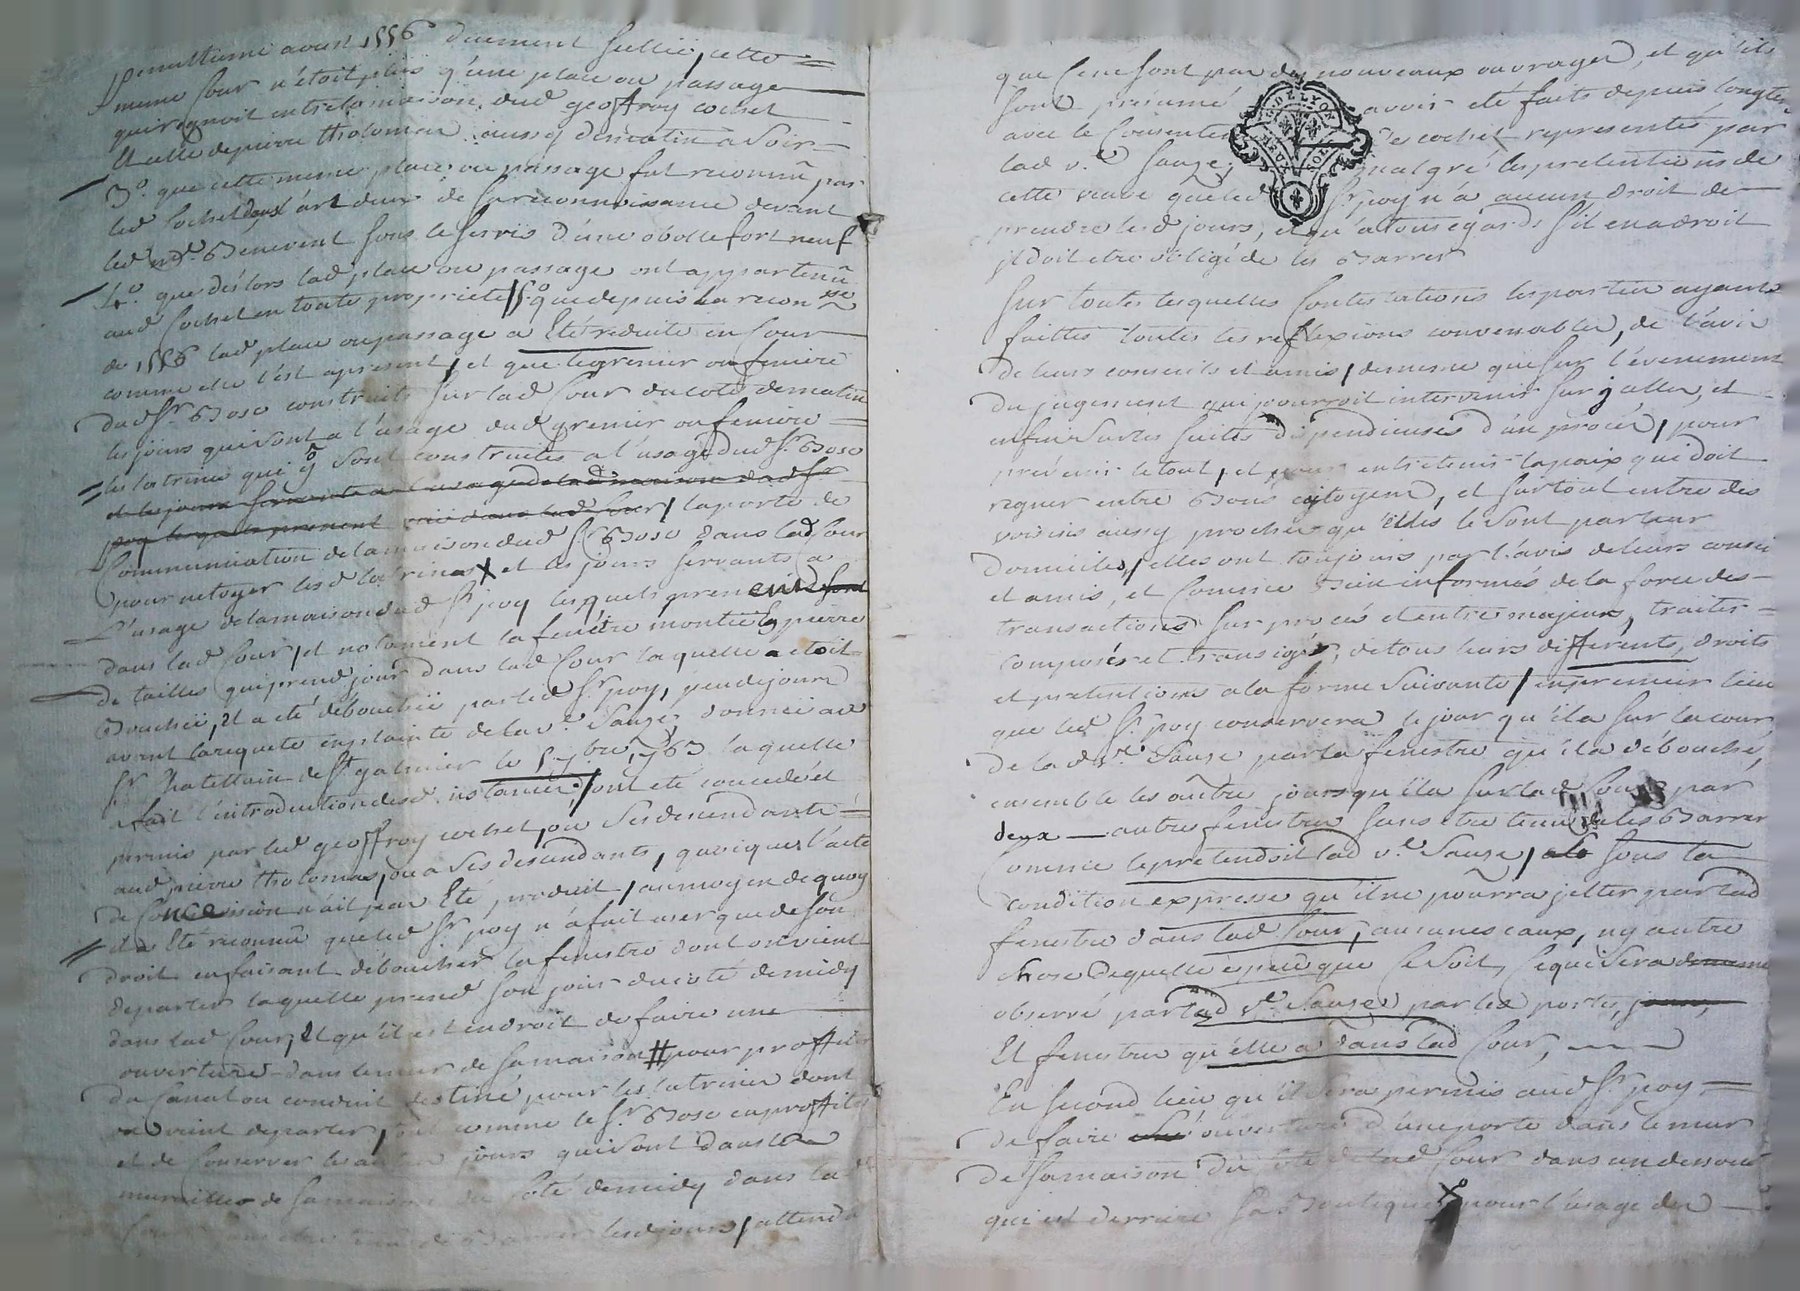 penultieme avoust 1556 duement scellée, cette
meme Cour n'étoit plus q'une place ou passage
qui regnoit entre la maison dud geoffroy cochet
Et celle de pierre tholomas aussy de matin a soir
3.o que cette meme place ou passage fut reconnu par
led Cochet dans l'art deux de sa reconnoissance devant
led Me Benevent sous le servis d'une obolle fort neuf
4.o que dés lors lad place ou passage ont appartenü
aud Cochet en toute propriété / 5.o que depuis la reconn.se
de 1556 lad place ou passage a Eté reduite en Cour
comme elle l'est apresent, et que le grenier ou feniere
dud Sr Boso construits sur lad Cour du coté de matin
les jours qui sont a l'usage dud grenier ou feniere
les latrines qui y sont construites a l'usage dud Sr Boso
et les jours servants a l'usage de la maison dud Sr
poy lesquels prenent dans lad Cour / la porte de
Communication de la maison dud Sr Boso dans lad Cour
pour netoyer lesd latrines X et les jours servants a
L'usage de la maison dud Sr poy lesquels prenent
dans lad Cour, et notament la fenétre montée En pierre
de tailles qui prend jour dans lad Cour laquelle etoit
Bouchée, Et a eté débouchée par led Sr poy, peu de jours
avant la requete en plainte de la ve Sauze donnée au
Sr Chatellain de St galmier le 5 7bre 1763 laquelle
a fait l'introduction desd instances, / ont eté concedés et
permis par led geoffroy cochet, ou ses descendants
aud pierre tholomas, ou a ses descendants, quoique l'acte
de Concession n'ait pas Eté produit / au moyen de quoy
il a Eté reconnu que led Sr poy n'a fait user que de son
droit en faisant déboucher la fenestre dont on vient
deparler laquelle prend son jour du coté de midy
dans lad Cour, Et qu'il est en droit de faire une
ouverture dans le mur de sa maison # pour proffiter
du Canal ou conduit destiné pour les latrines dont
on vient deparler, tout comme le Sr Boso en proffite
et de Conserver les autres jours qui sont dans la
muraille de sa maison du Coté de midy dans lad
Cour sans etre tenu de Barrer lesd jours / attendu
que ce ne sont pas des nouveaux ouvrages, et qu'ils
sont présumé avoir eté faits depuis longtems
avec le Consente cochet representés par
lad ve Sauze, malgré les pretentions de
cette veuve que led Sr poy n'a aucun droit de
prendre lesd jours, et qu'a tous égards s'il en a droit
il doit etre obligé de les Barrer
Sur toutes lesquelles Contestations les parties ayants
faittes toutes les reflexions convenables, de l'avis
de leurs conseils et amis, de meme que sur l'évenement
du jugement qui pourroit intervenir sur jcelles, et
enfin sur les suites dispendieuses d'un procés, pour
prévenir le tout, et pour entretenir la paix qui doit
regner entre Bons citoyens, et surtout entre des
voisins aussy proches qu'elles le sont par leur
Domiciles, / elles ont toujours par l'avis de leurs conseils
et amis, et Comme Bien informés de la force des
transactions sur procés et entre majeurs, traités
composés et transigés, de tous leurs différents, droits
et pretentions a la forme suivante / en premier lieu
que led Sr poy conservera le jour qu'il a sur la cour
de lad ve Sauze par la fenestre qu'il a débouché,
ensemble les autres jours qu'il a sur lad Cour par
deux autres fenestres sans etre tenu de les Barrer
Comme le pretendoit lad ve Sauze, sous la
condition expresse qu'il ne pourra jetter par lad
fenestre dans lad Cour, aucunes eaux, ny autre
chose dequelle espece que Ce soit, Ce qui sera de meme
observé par lad ve Sauze par les portes, jours,
Et fenestres qu'elle a dans lad Cour,
En second lieu qu'il sera permis aud Sr poy
de faire ouverture d'une porte dans le mur
de sa maison du coté de lad Cour dans un dessous
qui est derriere sa Boutique pour l'usage des